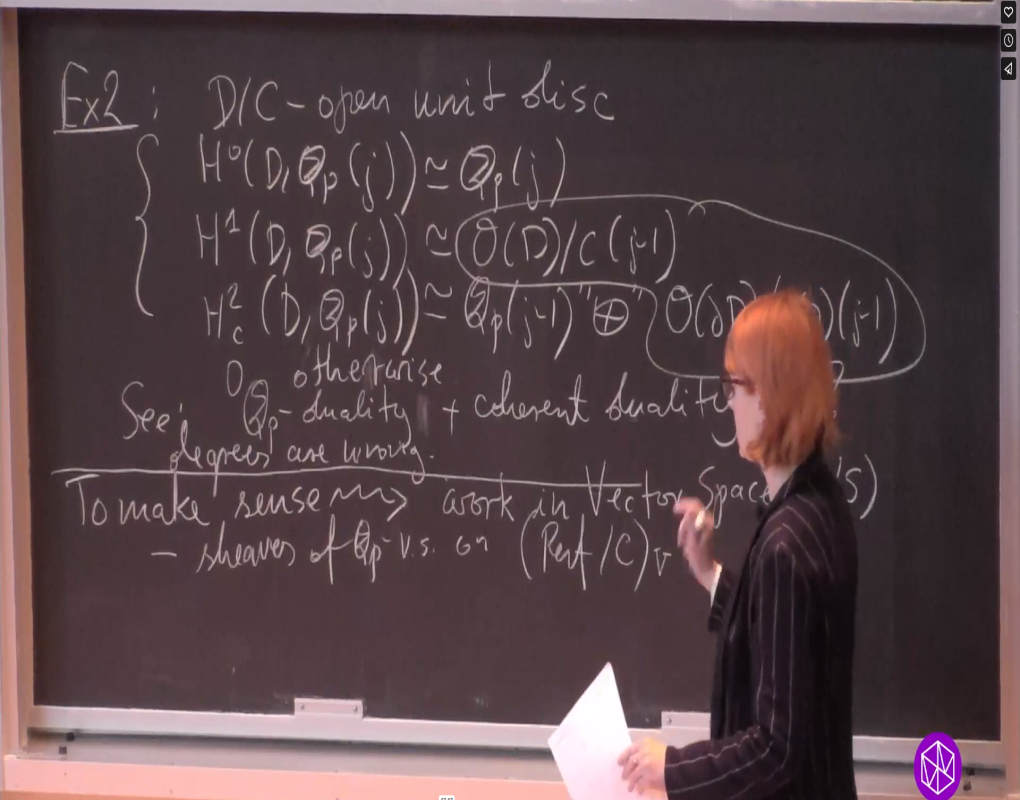 Ex2 : D/C - open unit disc
H⁰(D, ℚₚ(j)) ≃ ℚₚ(j)
H¹(D, ℚₚ(j)) ≃ O(D)/C (j-1)
H²_c (D, ℚₚ(j)) ≃ ℚₚ(j-1) "⊕" O(∂D) )(j-1)
0 otherwise
See: ℚₚ-duality + coherent duality
degrees are wrong.
To make sense ⇝ work in Vector Space 's)
- sheaves of ℚₚ-v.s. on (Perf/C)v